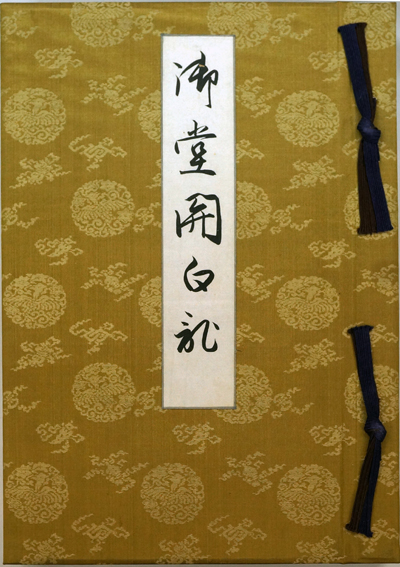 御堂関白記